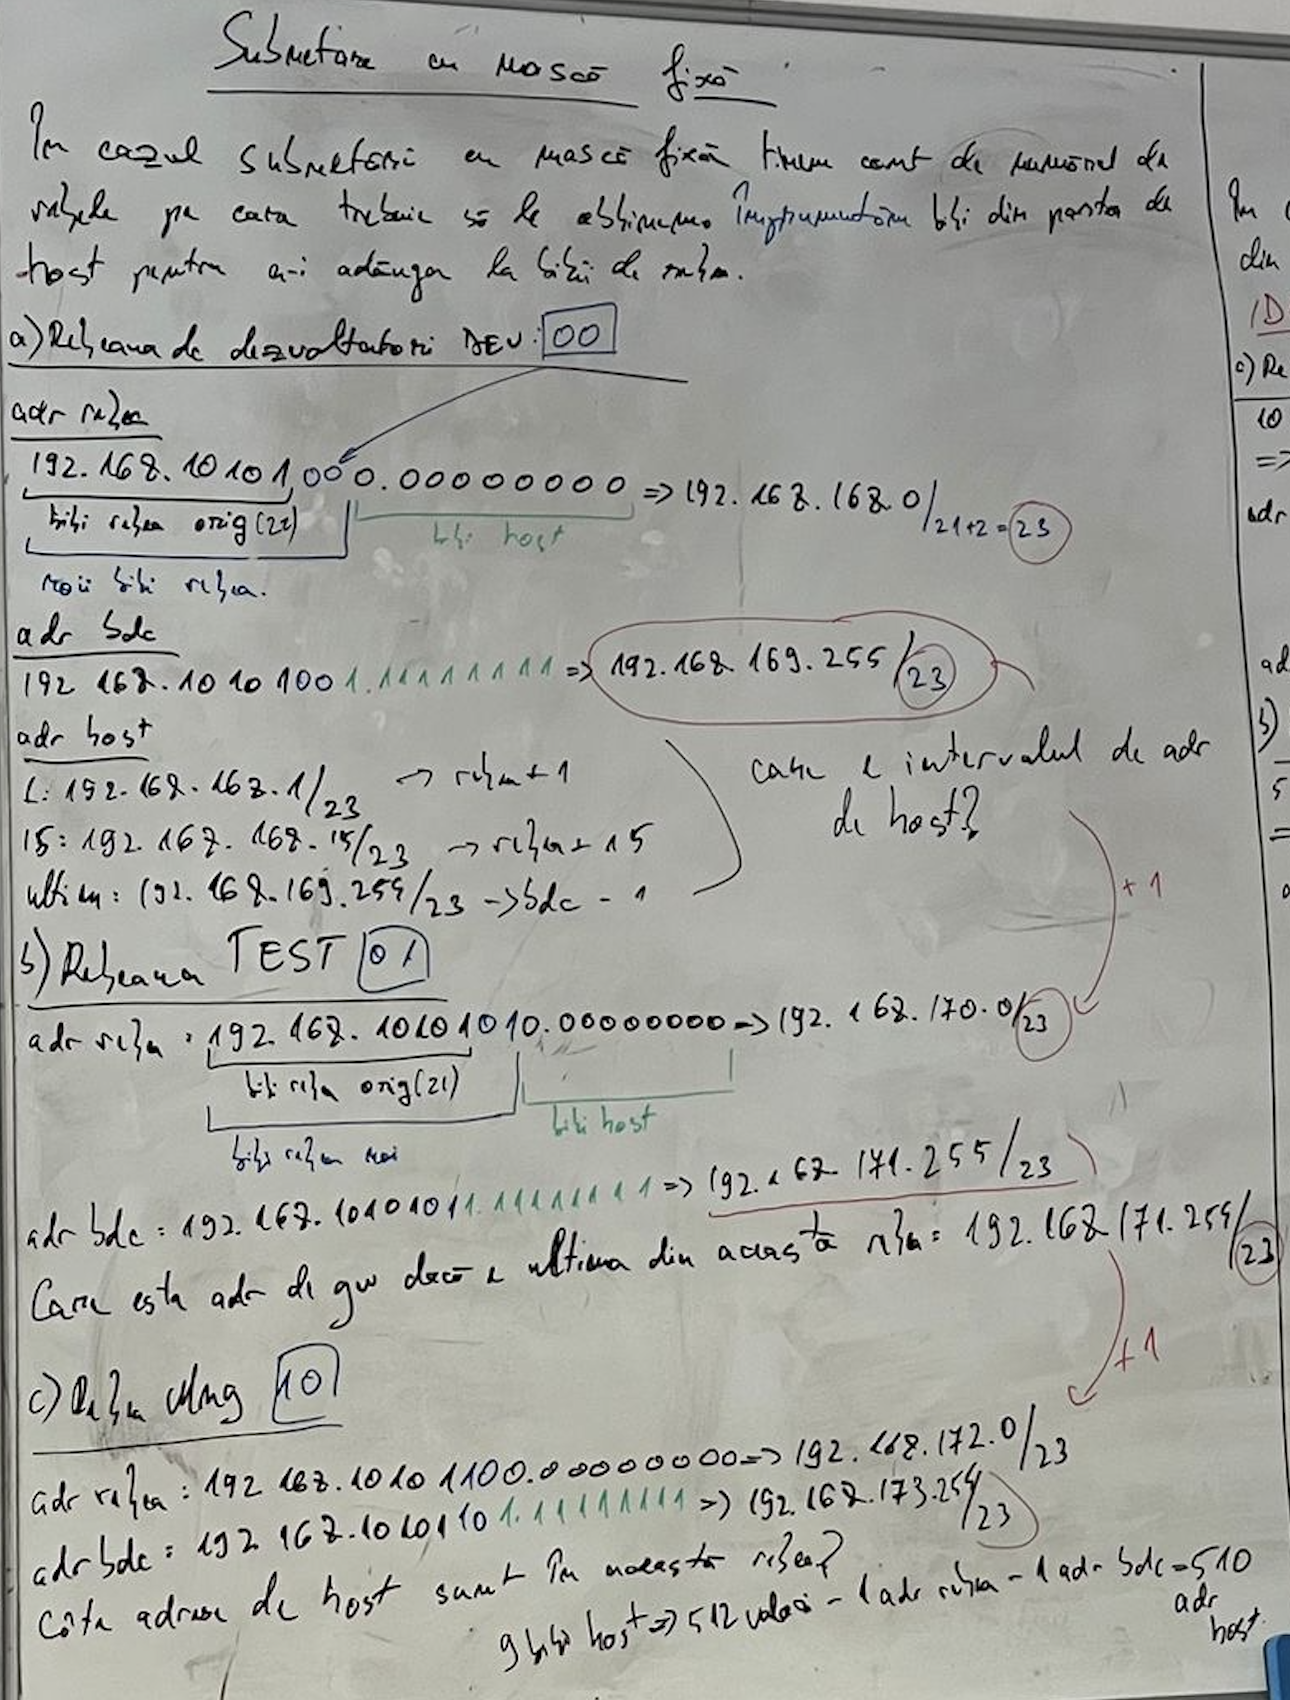 Subnetare cu mască fixă
În cazul subnetării cu mască fixă ținem cont de numărul de
rețele pe care trebuie să le obținem. Împrumutăm biți din partea de
host pentru a-i adăuga la biții de rețea.
a) Rețeaua de dezvoltatori DEV: 00
adr rețea
192.168.10101000.00000000 => 192.168.168.0/21+2=23
biți rețea orig(21) biți host
noii biți rețea.
adr bdc
192 168.10101001.11111111 => 192.168.169.255/23
adr host
1: 192.168.168.1/23 -> rețea+1
care e intervalul de adr
de host?
15: 192.168.168.15/23 -> rețea+15
ultim: 192.168.169.254/23 -> bdc - 1
+1
b) Rețeaua TEST 01
adr rețea: 192.168.10101010.00000000 => 192.168.170.0/23
biți rețea orig(21)
biți host
biți rețea noi
adr bdc = 192.168.10101011.11111111 => 192.168.171.255/23
Care este adr de gw dacă e ultima din această rețea= 192.168.171.254/23
+1
c) Rețea Mng 10
adr rețea: 192 168.10101100.00000000 => 192.168.172.0/23
adr bdc = 192 168.10101101.11111111 => 192.168.173.254/23
Câte adrese de host sunt în această rețea?
9 biți host => 512 valori - 1 adr rețea - 1 adr bdc = 510
adr
host.
În
din
ID
c) Re
10
=>
adr
ad
b)
5
=